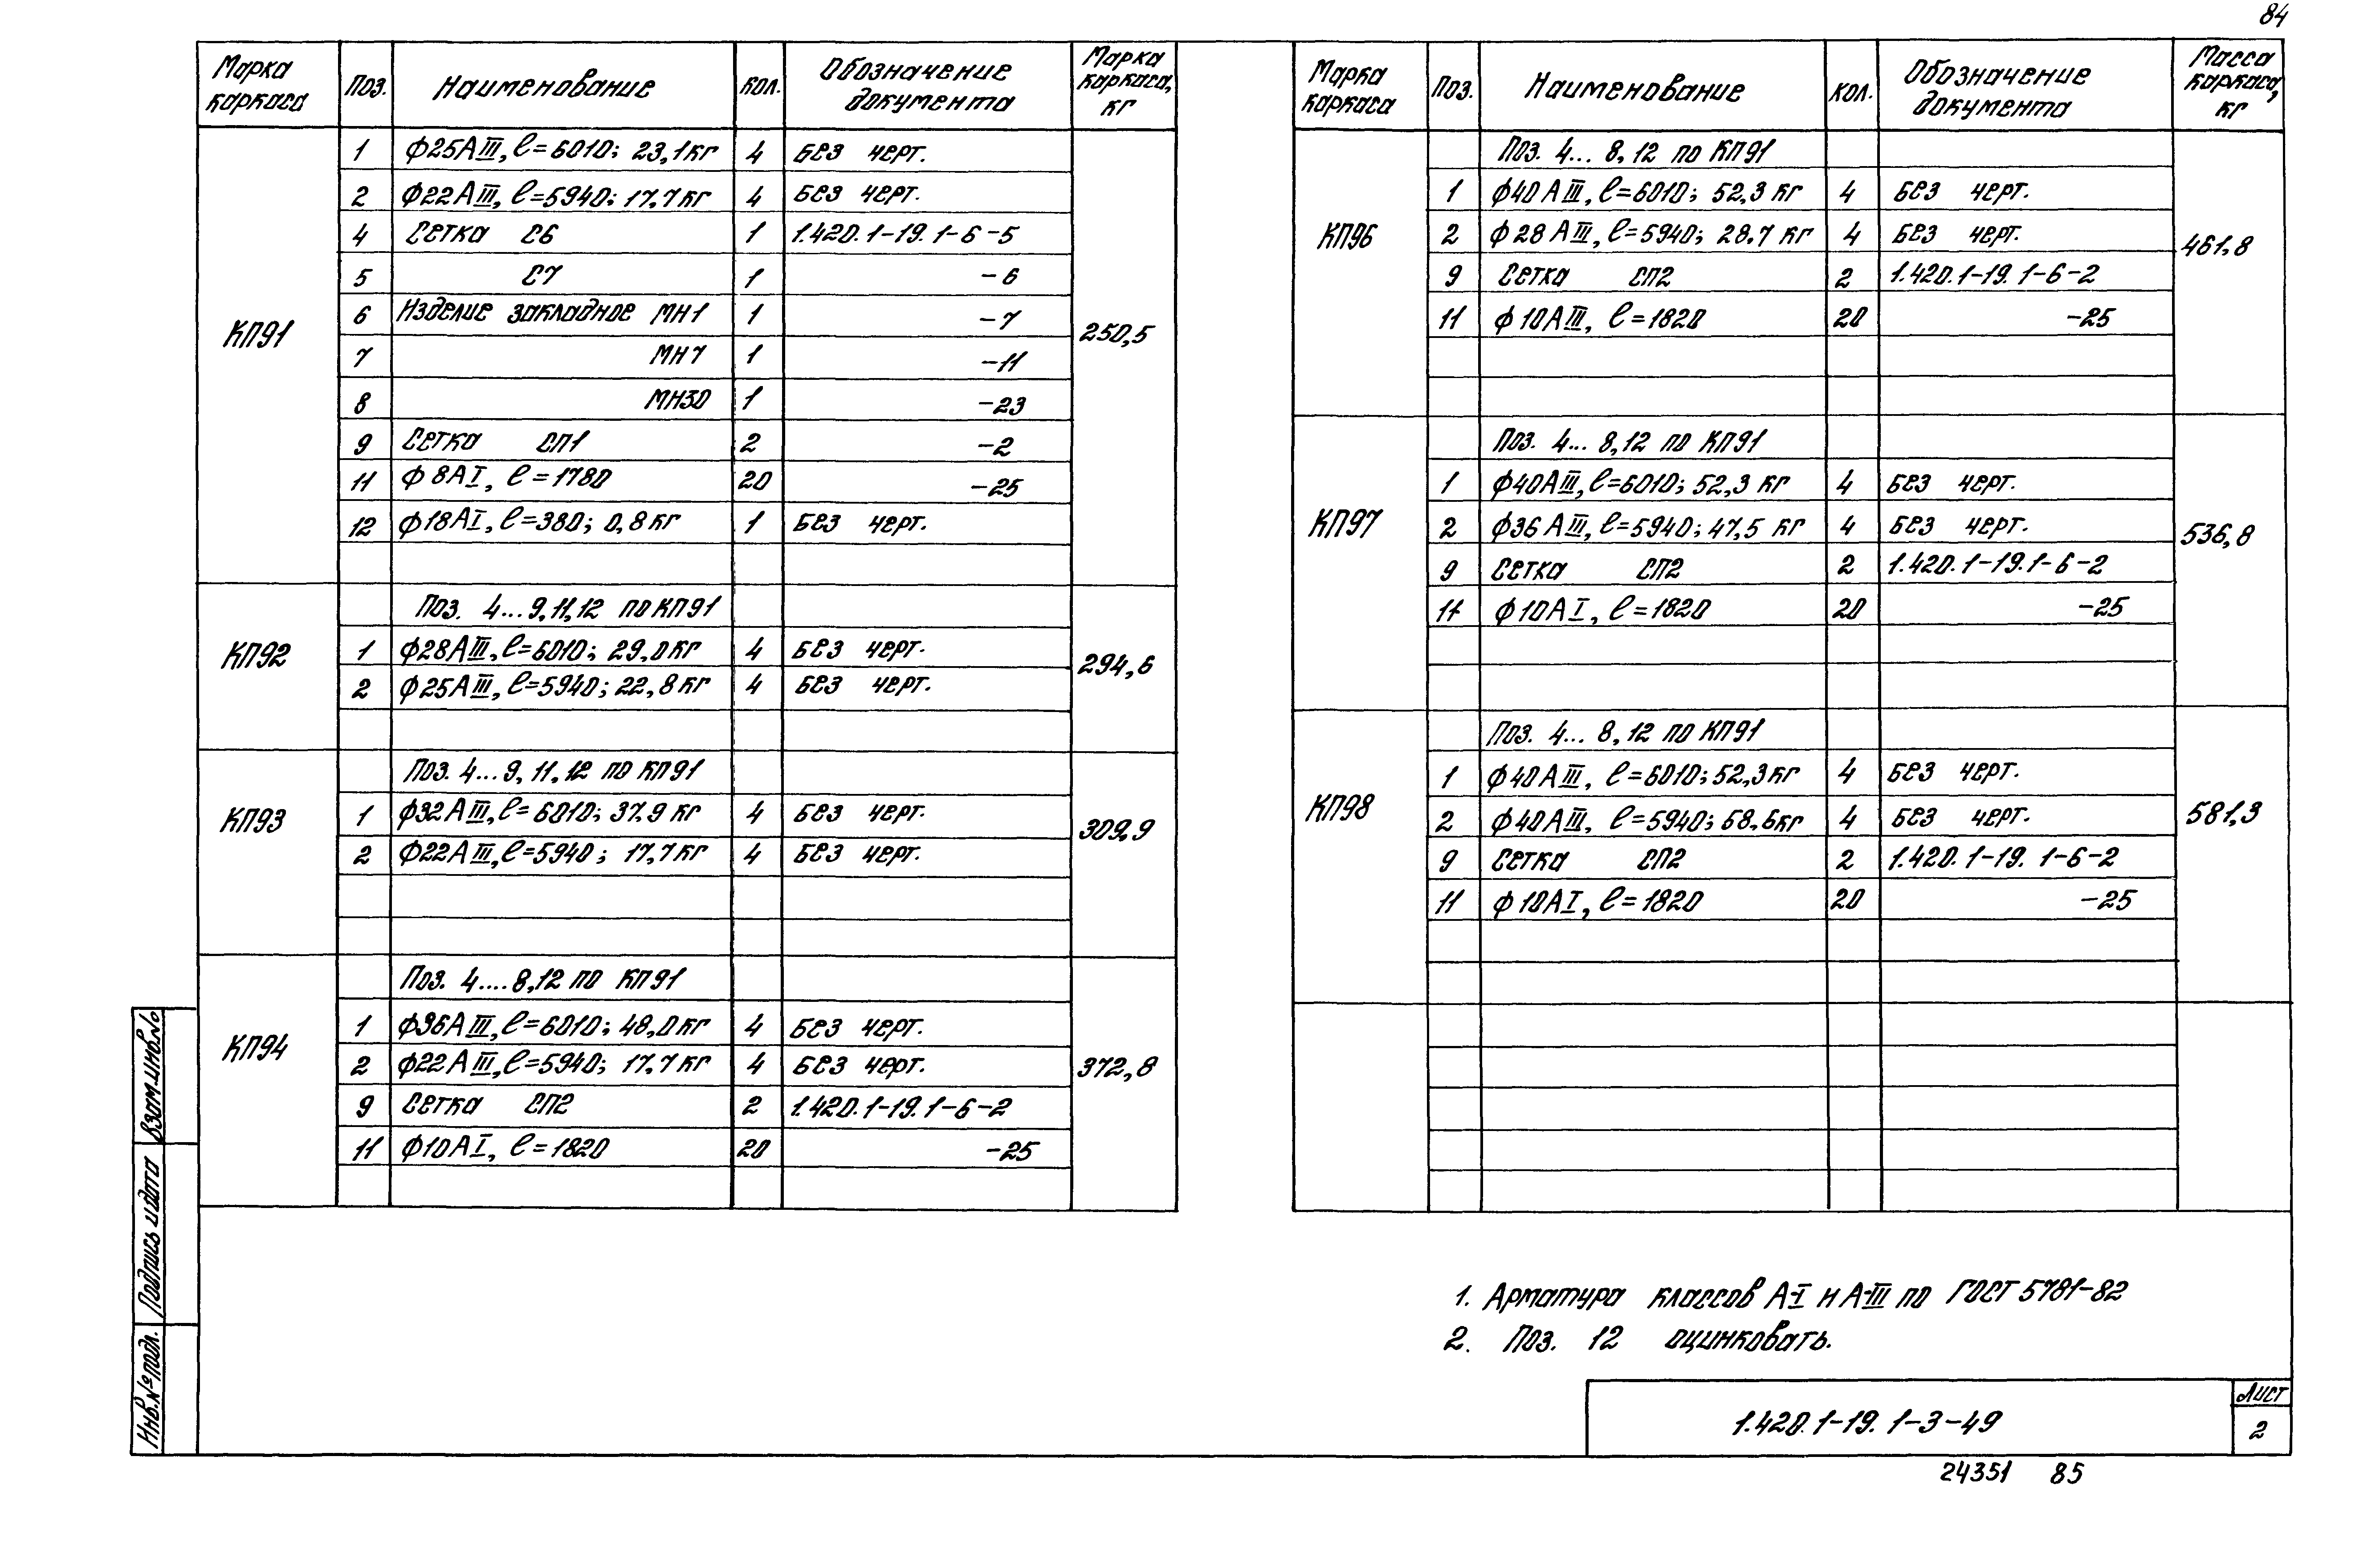 84
Марка каркаса | Поз. | Наименование | Кол. | Обозначение документа | Марка каркаса, кг
КП91 | 250,5
1 | ф25АIII, ℓ=6010; 23,1кг | 4 | Без черт.
2 | ф22АIII, ℓ=5940; 17,7кг | 4 | Без черт.
4 | Сетка С6 | 1 | 1.420.1-19.1-6-5
5 | С7 | 1 | -6
6 | Изделие закладное МН1 | 1 | -7
7 | МН7 | 1 | -11
8 | МН30 | 1 | -23
9 | Сетка СП1 | 2 | -2
11 | ф8АI, ℓ=1780 | 20 | -25
12 | ф18АI, ℓ=380; 0,8кг | 1 | Без черт.
КП92 | 294,6
Поз. 4...9,11,12 по КП91
1 | ф28АIII, ℓ=6010; 29,0кг | 4 | Без черт.
2 | ф25АIII, ℓ=5940; 22,8кг | 4 | Без черт.
КП93 | 309,9
Поз. 4...9, 11, 12 по КП91
1 | ф32АIII, ℓ=6010; 37,9 кг | 4 | Без черт.
2 | ф22АIII, ℓ=5940; 17,7кг | 4 | Без черт.
КП94 | 372,8
Поз. 4....8,12 по КП91
1 | ф36АIII, ℓ=6010; 48,0кг | 4 | Без черт.
2 | ф22АIII, ℓ=5940; 17,7кг | 4 | Без черт.
9 | Сетка СП2 | 2 | 1.420.1-19.1-6-2
11 | ф10АI, ℓ=1820 | 20 | -25
Марка каркаса | Поз. | Наименование | Кол. | Обозначение документа | Масса каркаса, кг
КП96 | 461,8
Поз. 4...8,12 по КП91
1 | ф40АIII, ℓ=6010; 52,3 кг | 4 | Без черт.
2 | ф28АIII, ℓ=5940; 28,7 кг | 4 | Без черт.
9 | Сетка СП2 | 2 | 1.420.1-19.1-6-2
11 | ф10АIII, ℓ=1820 | 20 | -25
КП97 | 536,8
Поз. 4...8,12 по КП91
1 | ф40АIII, ℓ=6010; 52,3 кг | 4 | Без черт.
2 | ф36АIII, ℓ=5940; 47,5 кг | 4 | Без черт.
9 | Сетка СП2 | 2 | 1.420.1-19.1-6-2
11 | ф10АI, ℓ=1820 | 20 | -25
КП98 | 581,3
Поз. 4...8,12 по КП91
1 | ф40АIII, ℓ=6010; 52,3кг | 4 | Без черт.
2 | ф40АIII, ℓ=5940; 58,6кг | 4 | Без черт.
9 | Сетка СП2 | 2 | 1.420.1-19.1-6-2
11 | ф10АI, ℓ=1820 | 20 | -25
1. Арматура классов А-I и А-III по ГОСТ 5781-82
2. Поз. 12 оцинковать.
Взам.инв.№
Подпись и дата
Инв.№ подл.
1.420.1-19.1-3-49
Лист
2
24351 85